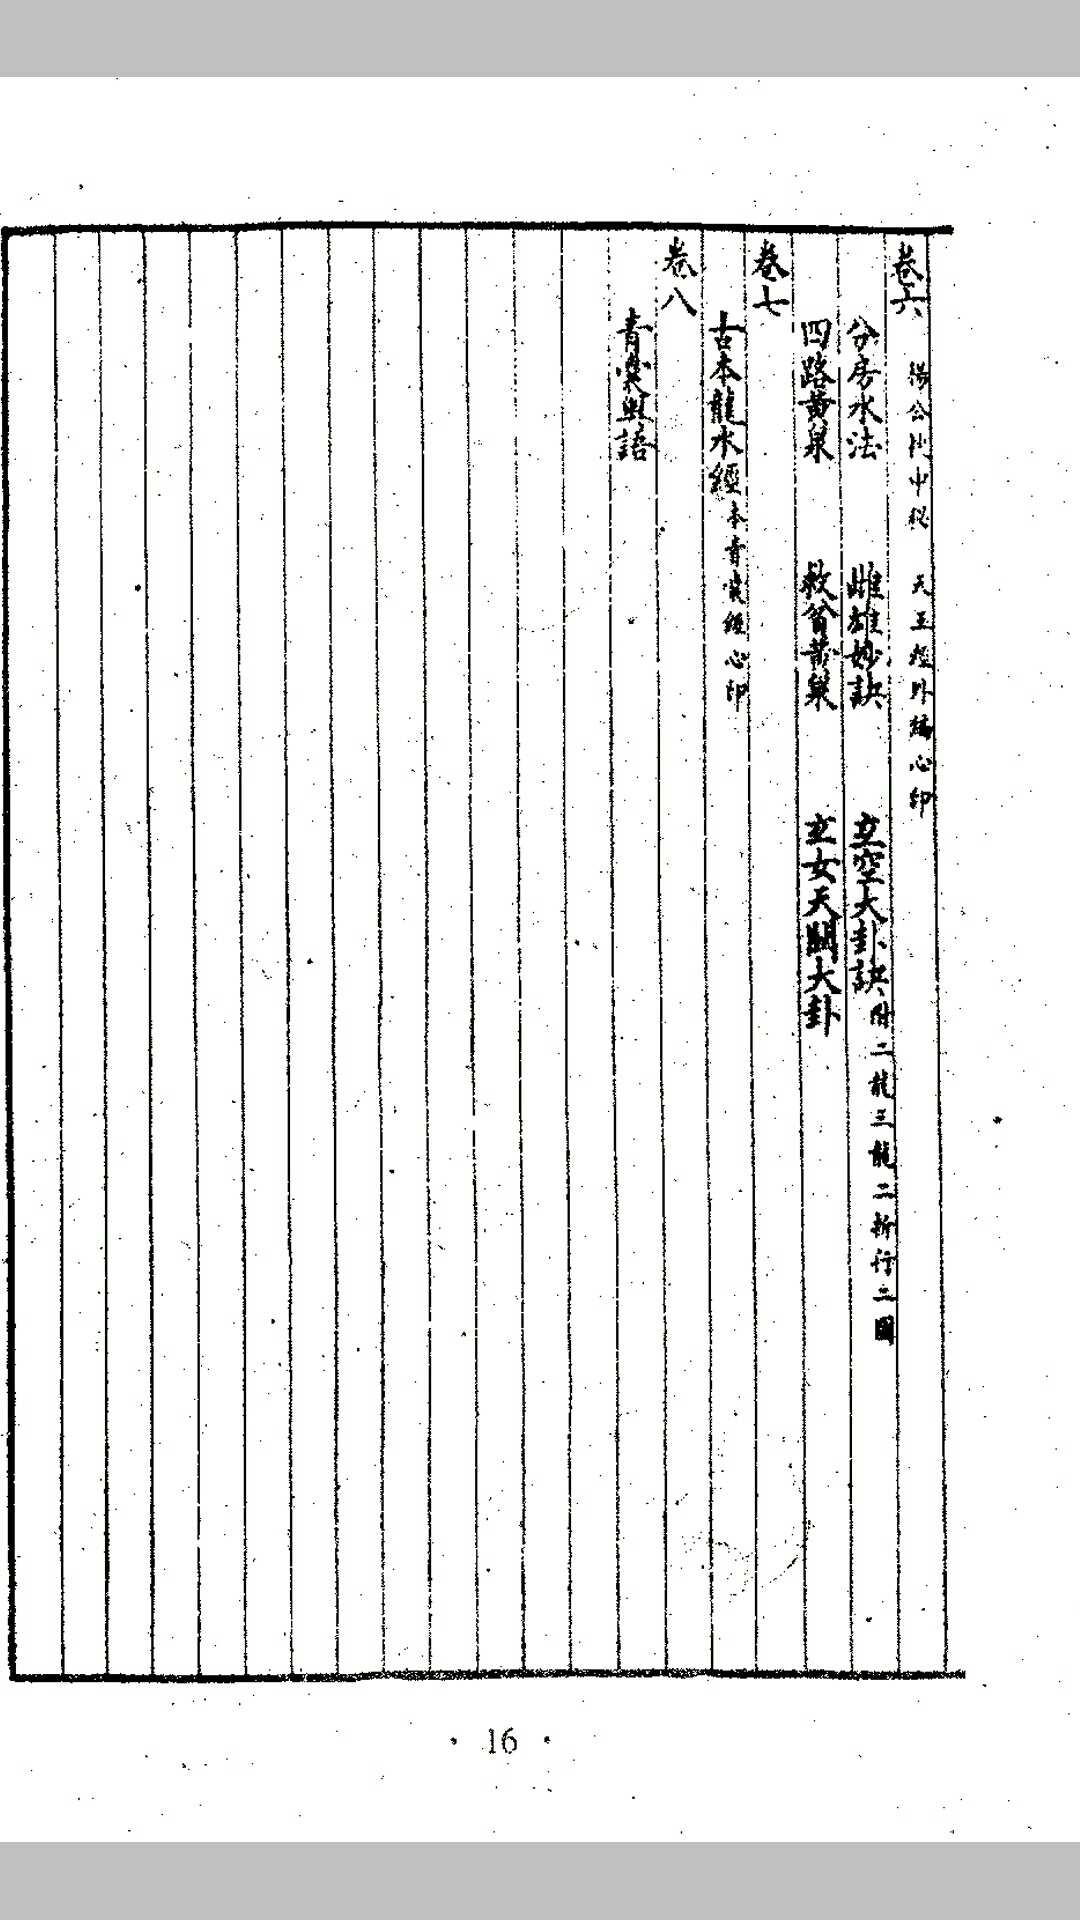 卷六 楊公門中秘 天玉經外編心印
分房水法 雌雄妙訣 玄空大卦訣 附二龍三龍二折行二圖
四路黃泉 救貧黃泉 玄女天關大卦
卷七
古本龍水經 本青囊經心印
卷八
青囊 語
· 16 ·